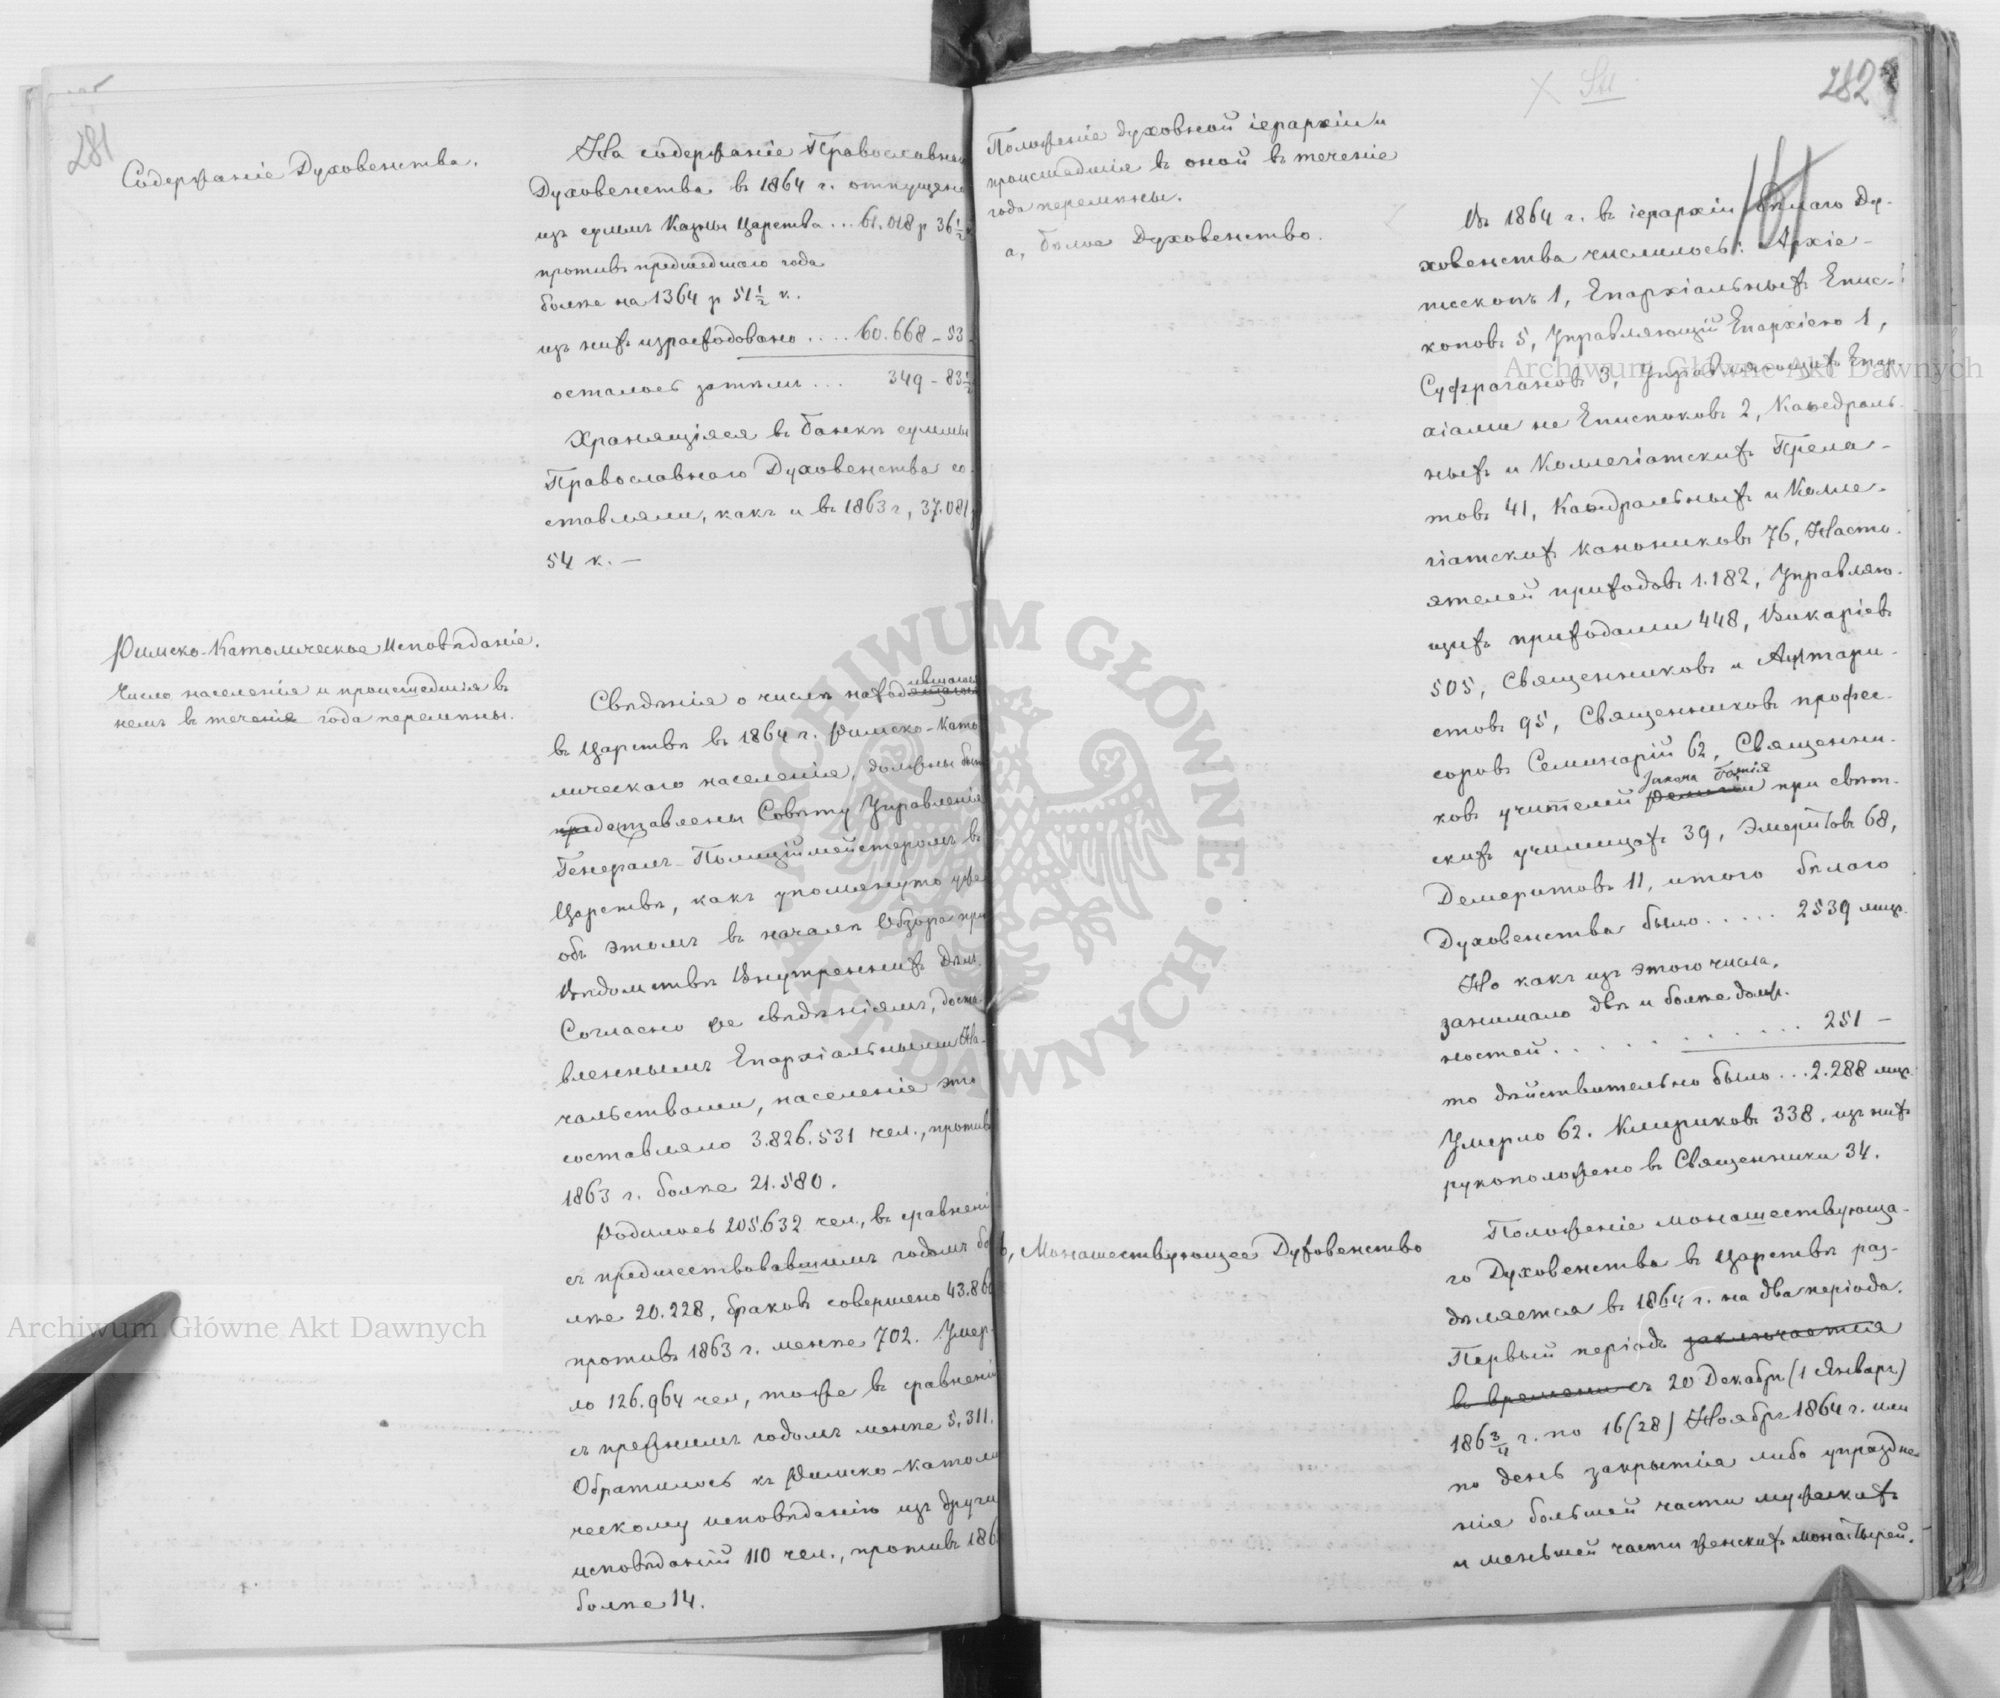 281
Содержаніе Духовенства.
На содержаніе Православнаго
Духовенства въ 1864 г. отпущено
изъ суммъ Казны Царства ... 61.018 р 36 1/2
противъ предшедшаго года
болѣе на 1364 р 51 1/2 к.
изъ нихъ израсходовано .... 60.668 - 53
осталось затѣмъ ... 349 - 83 1/2
Хранящіяся въ Банкѣ суммы
Православнаго Духовенства со-
ставляли, какъ и въ 1863 г, 37.081
54 к. —
Римско-Католическое Исповѣданіе.
Число населенія и происшедшія въ
немъ въ теченіе года перемѣны.
Свѣдѣнія о числѣ находившагося
въ Царствѣ въ 1864 г. Римско-Като
лическаго населенія, должны быть
представлены Совѣту Управленія
Генералъ-Полиціймейстеромъ въ
Царствѣ, какъ упомянуто уже
объ этомъ въ началѣ Обзора при
Вѣдомствѣ Внутреннихъ Дѣлъ.
Согласно же свѣдѣніямъ, доста-
вленнымъ Епархіальными На-
чальствами, населеніе это
составляло 3.826.531 чел., противъ
1863 г. болѣе 21.580.
Родилось 205.632 чел., въ сравненіи
съ предшествовавшимъ годомъ бо
лѣе 20.228, браковъ совершено 43.86
противъ 1863 г. менѣе 702. Умер-
ло 126.964 чел, тоже въ сравненіи
съ прежнимъ годомъ менѣе 5.311.
Обратилось къ Римско-Католи
ческому исповѣданію изъ другихъ
исповѣданій 110 чел., противъ 186
болѣе 14.
282
Положеніе духовной іерархіи и
происшедшія въ оной въ теченіе
года перемѣны.
а, бѣлое Духовенство.
Въ 1864 г. въ іерархіи бѣлаго Ду-
ховенства числилось: Архіе-
пископъ 1, Епархіальныхъ Епис-
коповъ 5, Управляющій Епархіею 1,
Суфрагановъ 3, Управляющихъ Епар
хіами не Епископовъ 2, Каѳедраль-
ныхъ и Коллегіатскихъ Прела-
товъ 41, Каѳедральныхъ и Колле-
гіатскихъ Канониковъ 76, Насто-
ятелей приходовъ 1.182, Управляю-
щихъ приходами 448, Викаріевъ
505, Священниковъ и Алтари-
стовъ 95, Священниковъ профес-
соровъ Семинарій 62, Священни-
ковъ учителей Закона Божія при свѣт-
скихъ училищахъ 39, Эмеритовъ 68,
Демеритовъ 11, итого бѣлаго
Духовенства было ..... 2539 лицъ.
Но какъ изъ этого числа,
занимало двѣ и болѣе долж-
ностей ......... 251 —
то дѣйствительно было ... 2.288 лицъ.
Умерло 62. Клириковъ 338, изъ нихъ
рукоположено въ Священники 34.
b, Монашествующее Духовенство
Положеніе монашествующа-
го Духовенства въ Царствѣ раз-
дѣляется въ 1864 г. на два періода.
Первый періодъ заключается
въ времени съ 20 Декабря (1 Января)
1863/4 г. по 16 (28) Ноября 1864 г. или
по день закрытія либо упраздне-
нія большей части мужскихъ
и меньшей части женскихъ монастырей.
Archiwum Główne Akt Dawnych
Archiwum Główne Akt Dawnych
ARCHIWUM GŁÓWNE AKT DAWNYCH